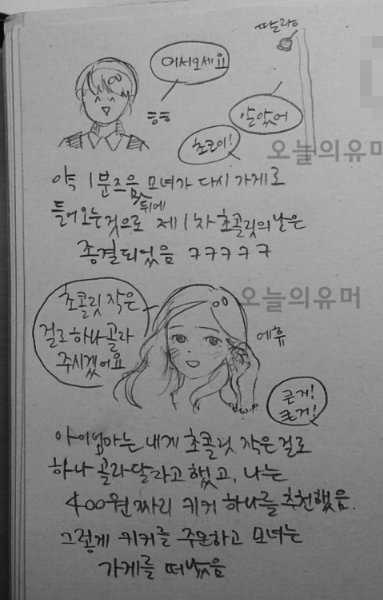 딸랑
어서오세요
ㅎㅎ
알았어
초코이!
오늘의유머
약 1분즈음 뒤에 모녀가 다시 가게로
들어오는것으로 제 1차 초콜릿의 난은
종결되었음 ㅋㅋㅋㅋㅋ
오늘의유머
초콜릿 작은
걸로 하나 골라
주시겠어요
에휴
큰거!
큰거!
아이엄마는 내게 초콜릿 작은걸로
하나 골라달라고 했고, 나는
400원 짜리 키커 하나를 추천했음.
그렇게 키커를 주문하고 모녀는
가게를 떠났음